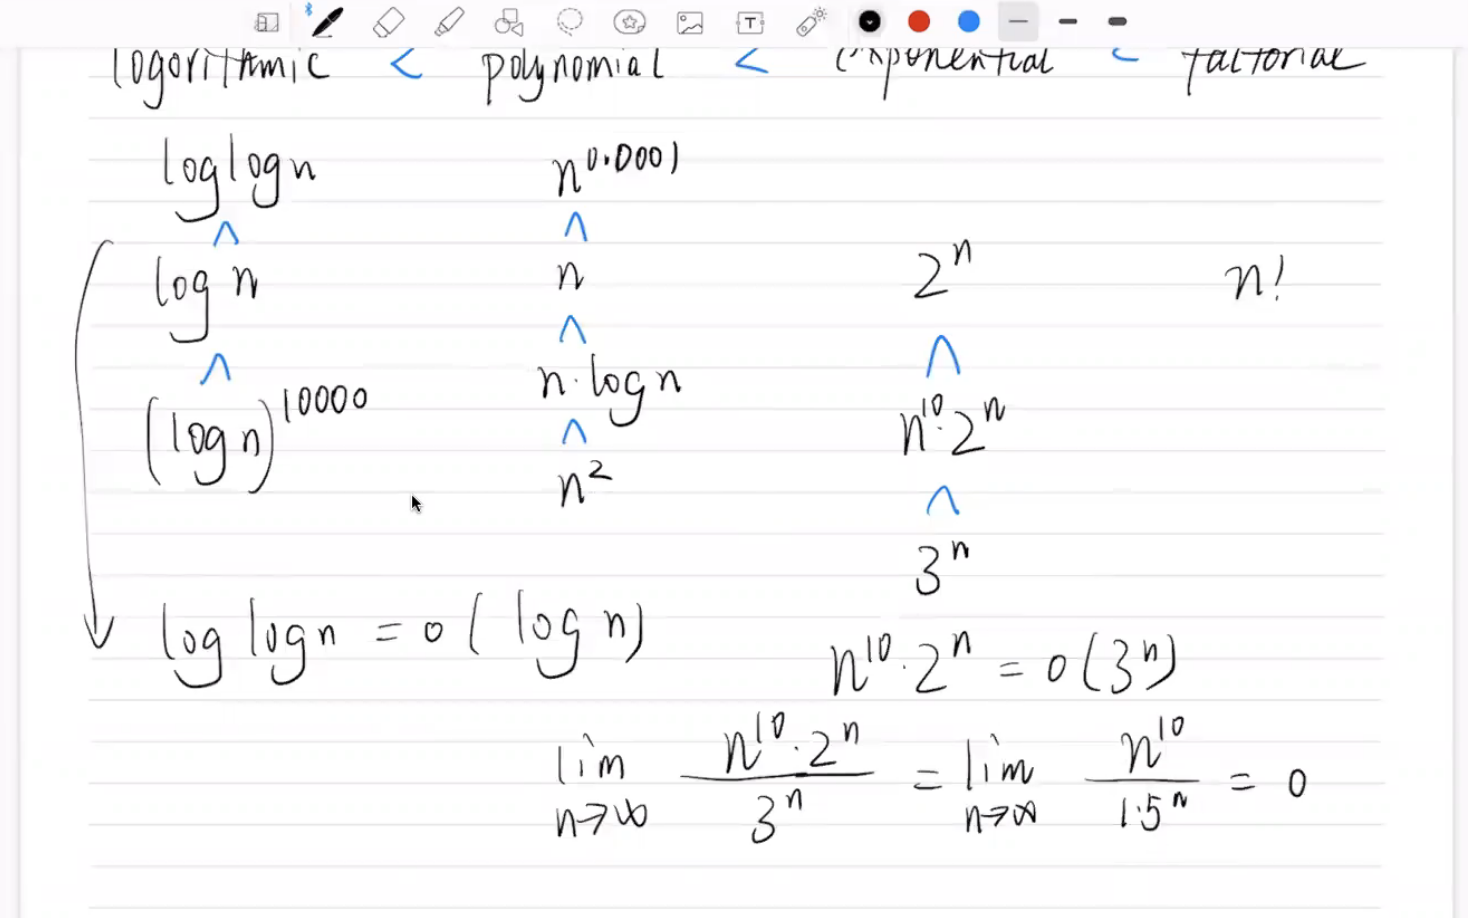 logorithmic < polynomial < exponential < factorial
loglogn n^0.0001
∧ ∧
log n n 2^n n!
∧ ∧ ∧
(log n)^10000 n·logn n^10·2^n
∧ ∧
n^2 3^n
log logn = o(log n) n^10·2^n = o(3^n)
lim n→∞ n^10·2^n / 3^n = lim n→∞ n^10 / 1.5^n = 0